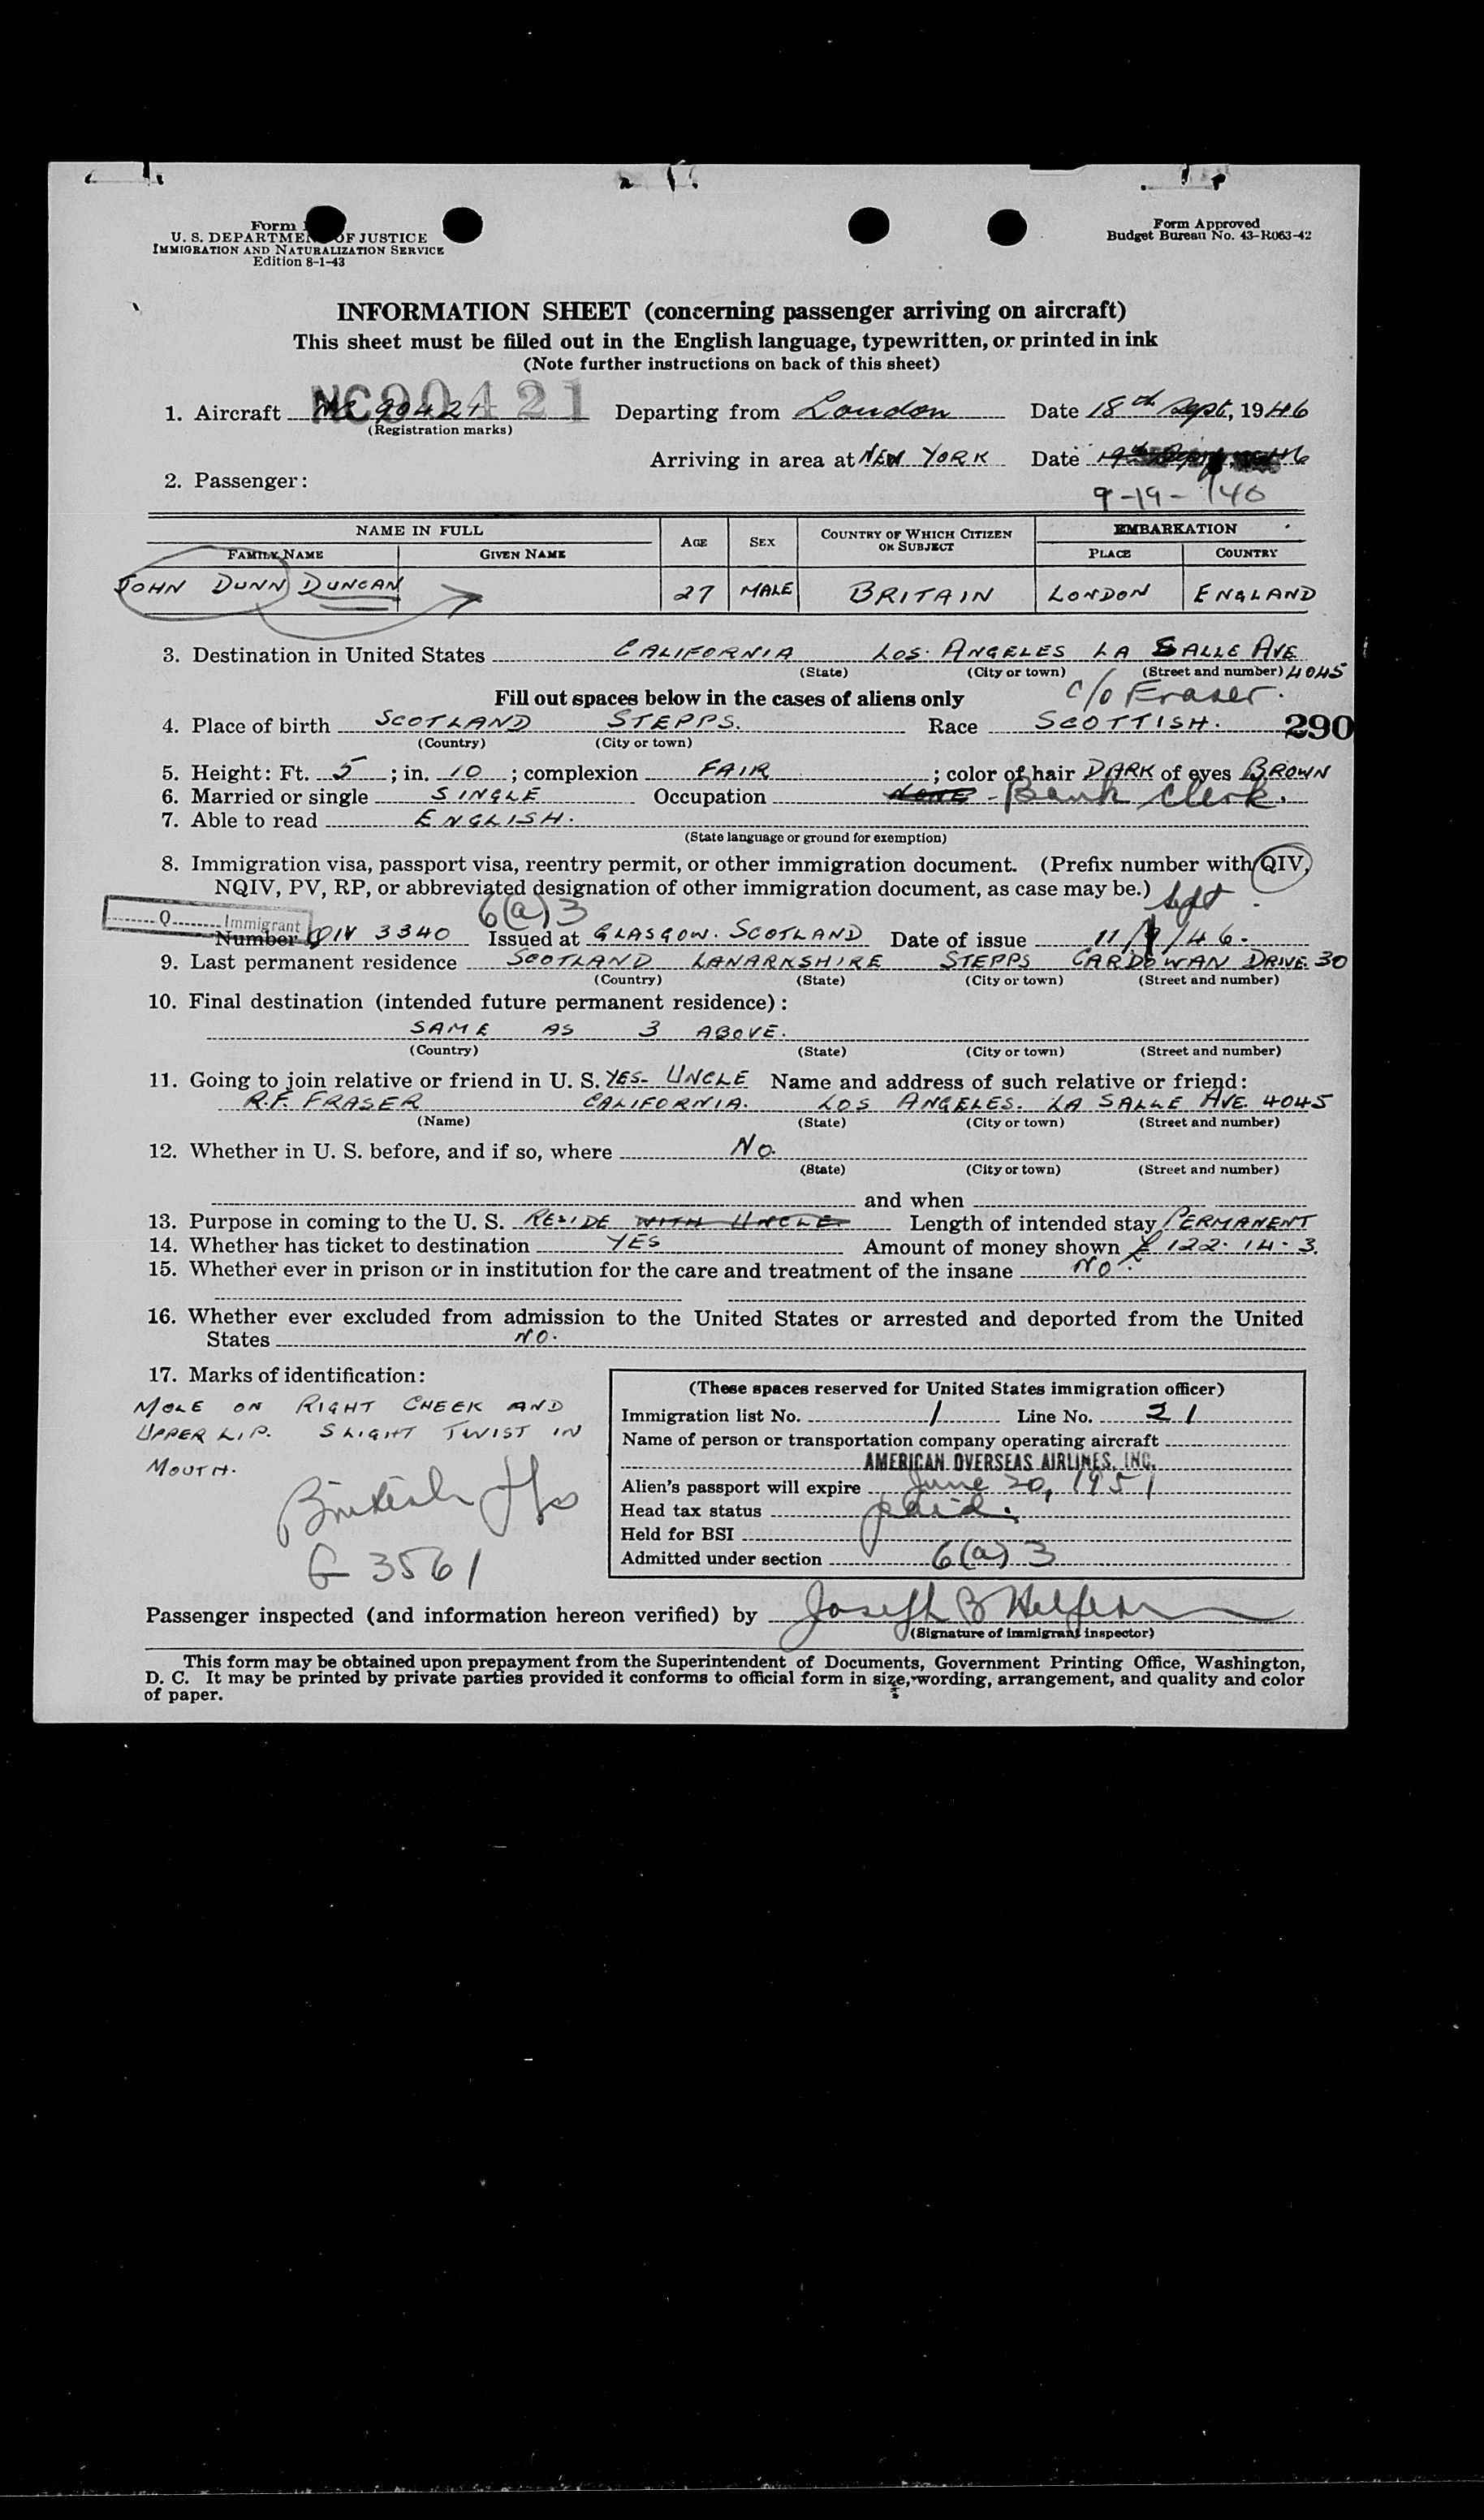 Form
U. S. DEPARTMENT OF JUSTICE
IMMIGRATION AND NATURALIZATION SERVICE
Edition 8-1-43
Form Approved
Budget Bureau No. 43-R063-42
INFORMATION SHEET (concerning passenger arriving on aircraft)
This sheet must be filled out in the English language, typewritten, or printed in ink
(Note further instructions on back of this sheet)
NC90421
1. Aircraft NC 90421 Departing from London Date 18th Sept, 1946
(Registration marks)
Arriving in area at NEW YORK Date 19th
2. Passenger: 9-19-
NAME IN FULL AGE SEX COUNTRY OF WHICH CITIZEN OR SUBJECT EMBARKATION
FAMILY NAME GIVEN NAME PLACE COUNTRY
JOHN DUNN DUNCAN 27 MALE BRITAIN LONDON ENGLAND
3. Destination in United States CALIFORNIA LOS ANGELES LA SALLE AVE
(State) (City or town) (Street and number) 4045
Fill out spaces below in the cases of aliens only c/o Fraser.
4. Place of birth SCOTLAND STEPPS. Race SCOTTISH. 290
(Country) (City or town)
5. Height: Ft. 5 ; in. 10 ; complexion FAIR ; color of hair DARK of eyes BROWN
6. Married or single SINGLE Occupation NONE - Bank Clerk.
7. Able to read ENGLISH.
(State language or ground for exemption)
8. Immigration visa, passport visa, reentry permit, or other immigration document. (Prefix number with QIV,
NQIV, PV, RP, or abbreviated designation of other immigration document, as case may be.)
6(a)3 Sept
Q Immigrant
Number QIV 3340 Issued at GLASGOW. SCOTLAND Date of issue 11/9/46.
9. Last permanent residence SCOTLAND LANARKSHIRE STEPPS CARDOWAN DRIVE. 30
(Country) (State) (City or town) (Street and number)
10. Final destination (intended future permanent residence):
SAME AS 3 ABOVE.
(Country) (State) (City or town) (Street and number)
11. Going to join relative or friend in U. S. YES- UNCLE Name and address of such relative or friend:
R.F. FRASER CALIFORNIA. LOS ANGELES. LA SALLE AVE. 4045
(Name) (State) (City or town) (Street and number)
12. Whether in U. S. before, and if so, where No.
(State) (City or town) (Street and number)
and when
13. Purpose in coming to the U. S. RESIDE WITH UNCLE Length of intended stay PERMANENT
14. Whether has ticket to destination YES Amount of money shown £ 122. 14. 3.
15. Whether ever in prison or in institution for the care and treatment of the insane No.
16. Whether ever excluded from admission to the United States or arrested and deported from the United
States NO.
17. Marks of identification:
MOLE ON RIGHT CHEEK AND
UPPER LIP. SLIGHT TWIST IN
MOUTH.
British
G 3561
(These spaces reserved for United States immigration officer)
Immigration list No. 1 Line No. 21
Name of person or transportation company operating aircraft
AMERICAN OVERSEAS AIRLINES, INC.
Alien's passport will expire June 20, 1951
Head tax status paid.
Held for BSI
Admitted under section 6(a) 3
Passenger inspected (and information hereon verified) by Joseph B
(Signature of immigrant inspector)
This form may be obtained upon prepayment from the Superintendent of Documents, Government Printing Office, Washington,
D. C. It may be printed by private parties provided it conforms to official form in size, wording, arrangement, and quality and color
of paper.